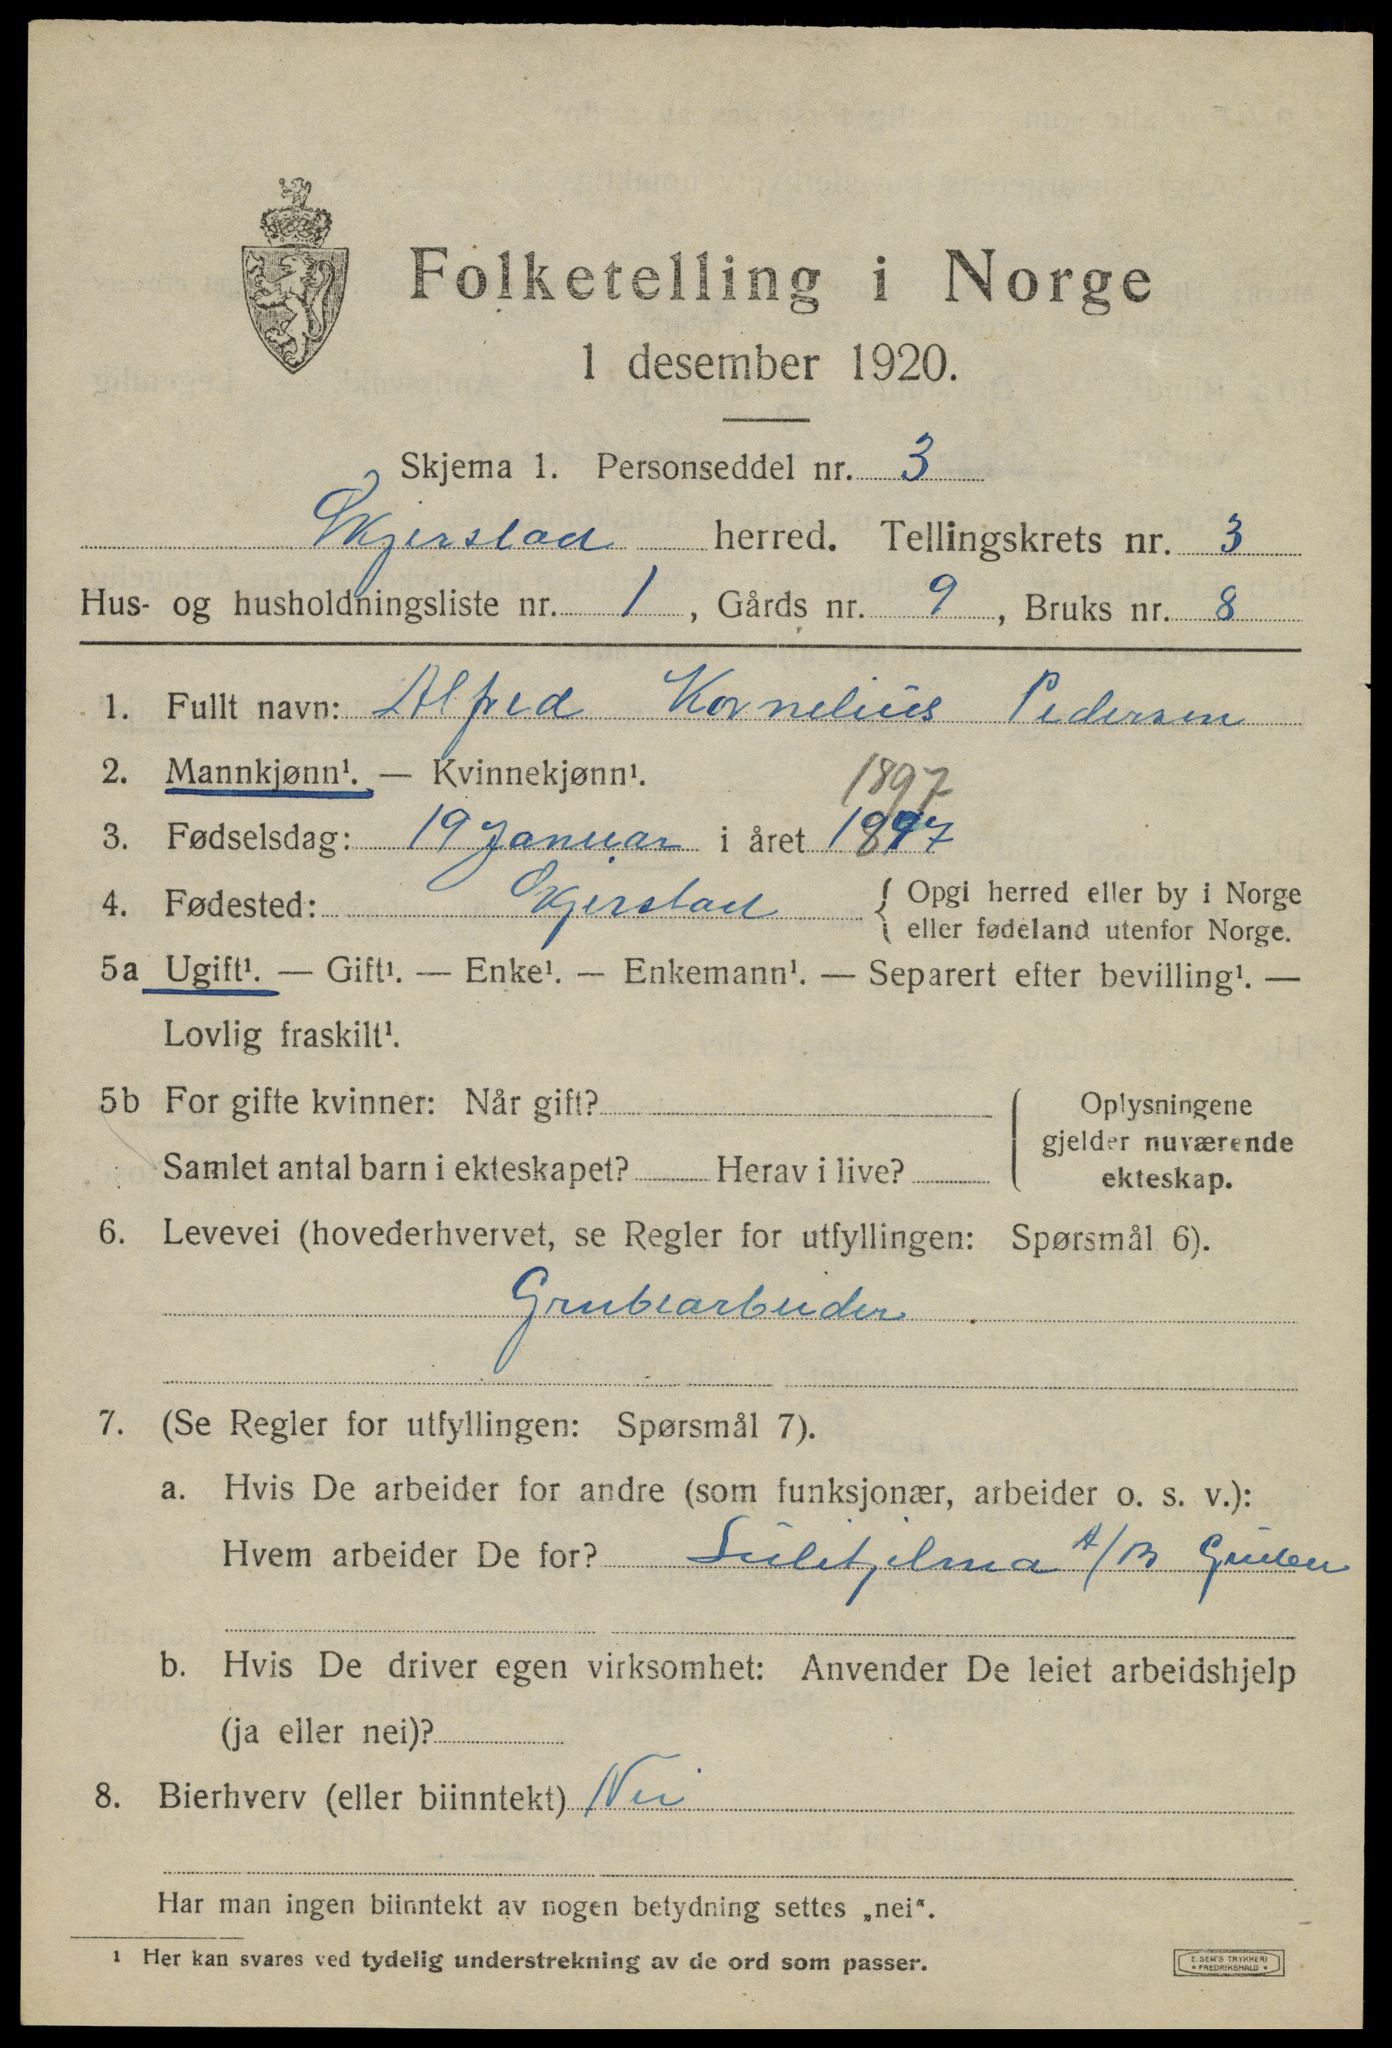 Folketelling i Norge
1 desember 1920.
Skjema 1. Personseddel nr. 3
Skjerstad herred. Tellingskrets nr. 3
Hus- og husholdningsliste nr. 1, Gårds nr. 9, Bruks nr. 8
1. Fullt navn: Alfred Kornelius Pedersen
2. Mannkjønn¹. — Kvinnekjønn¹.
1897
3. Fødselsdag: 19 Januar i året 1897
4. Fødested: Skjerstad { Opgi herred eller by i Norge
eller fødeland utenfor Norge.
5a Ugift¹. — Gift¹. — Enke¹. — Enkemann¹. — Separert efter bevilling¹. —
Lovlig fraskilt¹.
5b For gifte kvinner: Når gift?
Samlet antal barn i ekteskapet? Herav i live?
Oplysningene
gjelder nuværende
ekteskap.
6. Levevei (hovederhvervet, se Regler for utfyllingen: Spørsmål 6).
Grubearbeider
7. (Se Regler for utfyllingen: Spørsmål 7).
a. Hvis De arbeider for andre (som funksjonær, arbeider o. s. v.):
Hvem arbeider De for? Sulitjelma A/B Gruber
b. Hvis De driver egen virksomhet: Anvender De leiet arbeidshjelp
(ja eller nei)?
8. Bierhverv (eller biinntekt) Nei
Har man ingen biinntekt av nogen betydning settes „nei“.
¹ Her kan svares ved tydelig understrekning av de ord som passer.
E. SEM'S TRYKKERI
FREDRIKSHALD